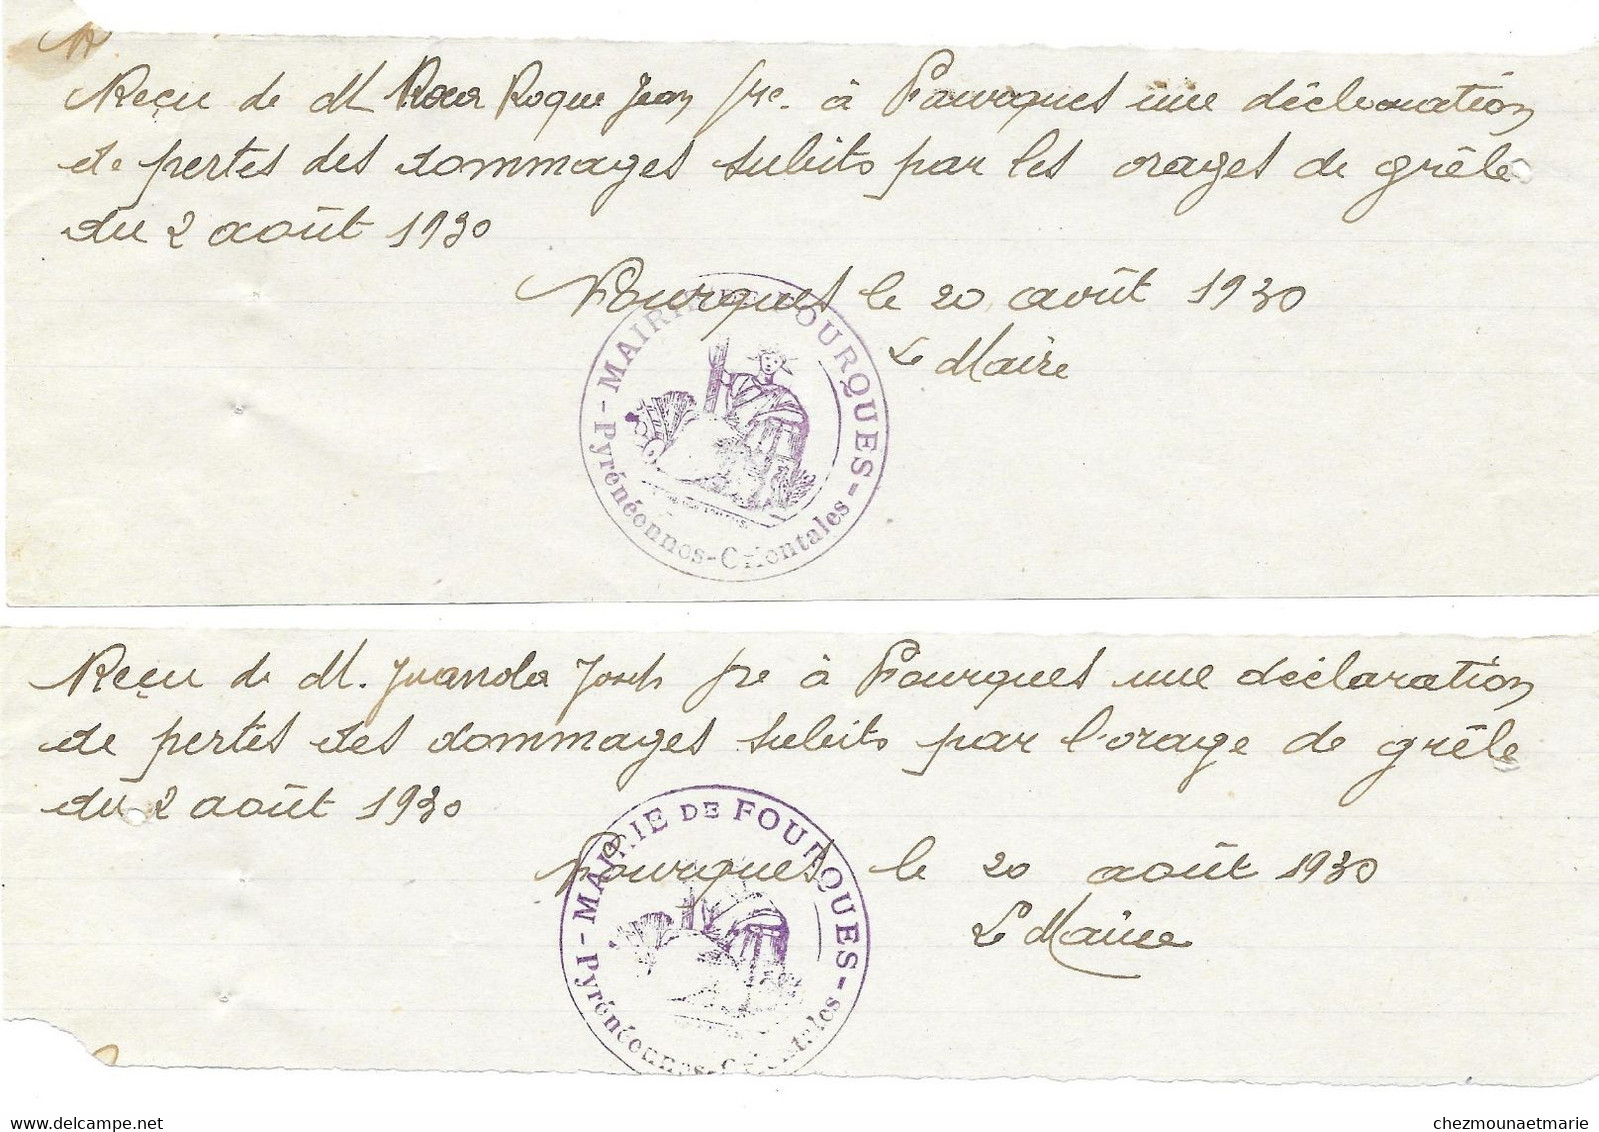 Reçu de M Roque Jean pre. à Fourques une déclaration
de pertes des dommages subits par les orages de grêle
du 2 août 1930
Fourques le 20 août 1930
Le Maire
MAIRIE DE FOURQUES
Pyrénéennes-Orientales
Reçu de M. Juanola Joseph pre à Fourques une déclaration
de pertes des dommages subits par l'orage de grêle
du 2 août 1930
Fourques le 20 août 1930
Le Maire
MAIRIE DE FOURQUES
Pyrénéennes-Orientales
chezmounaetmarie